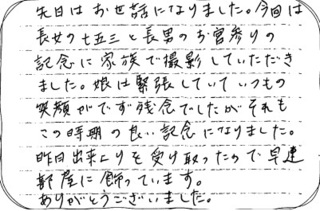 先日はお世話になりました。今回は
長女の七五三と長男のお宮参りの
記念に家族で撮影していただき
ました。娘は緊張していていつもの
笑顔がでず残念でしたがそれも
この時期の良い記念になりました。
昨日出来上りを受け取ったので早速
部屋に飾っています。
ありがとうございました。